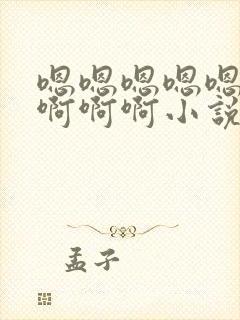 嗯嗯嗯嗯嗯
啊啊啊小说
孟子